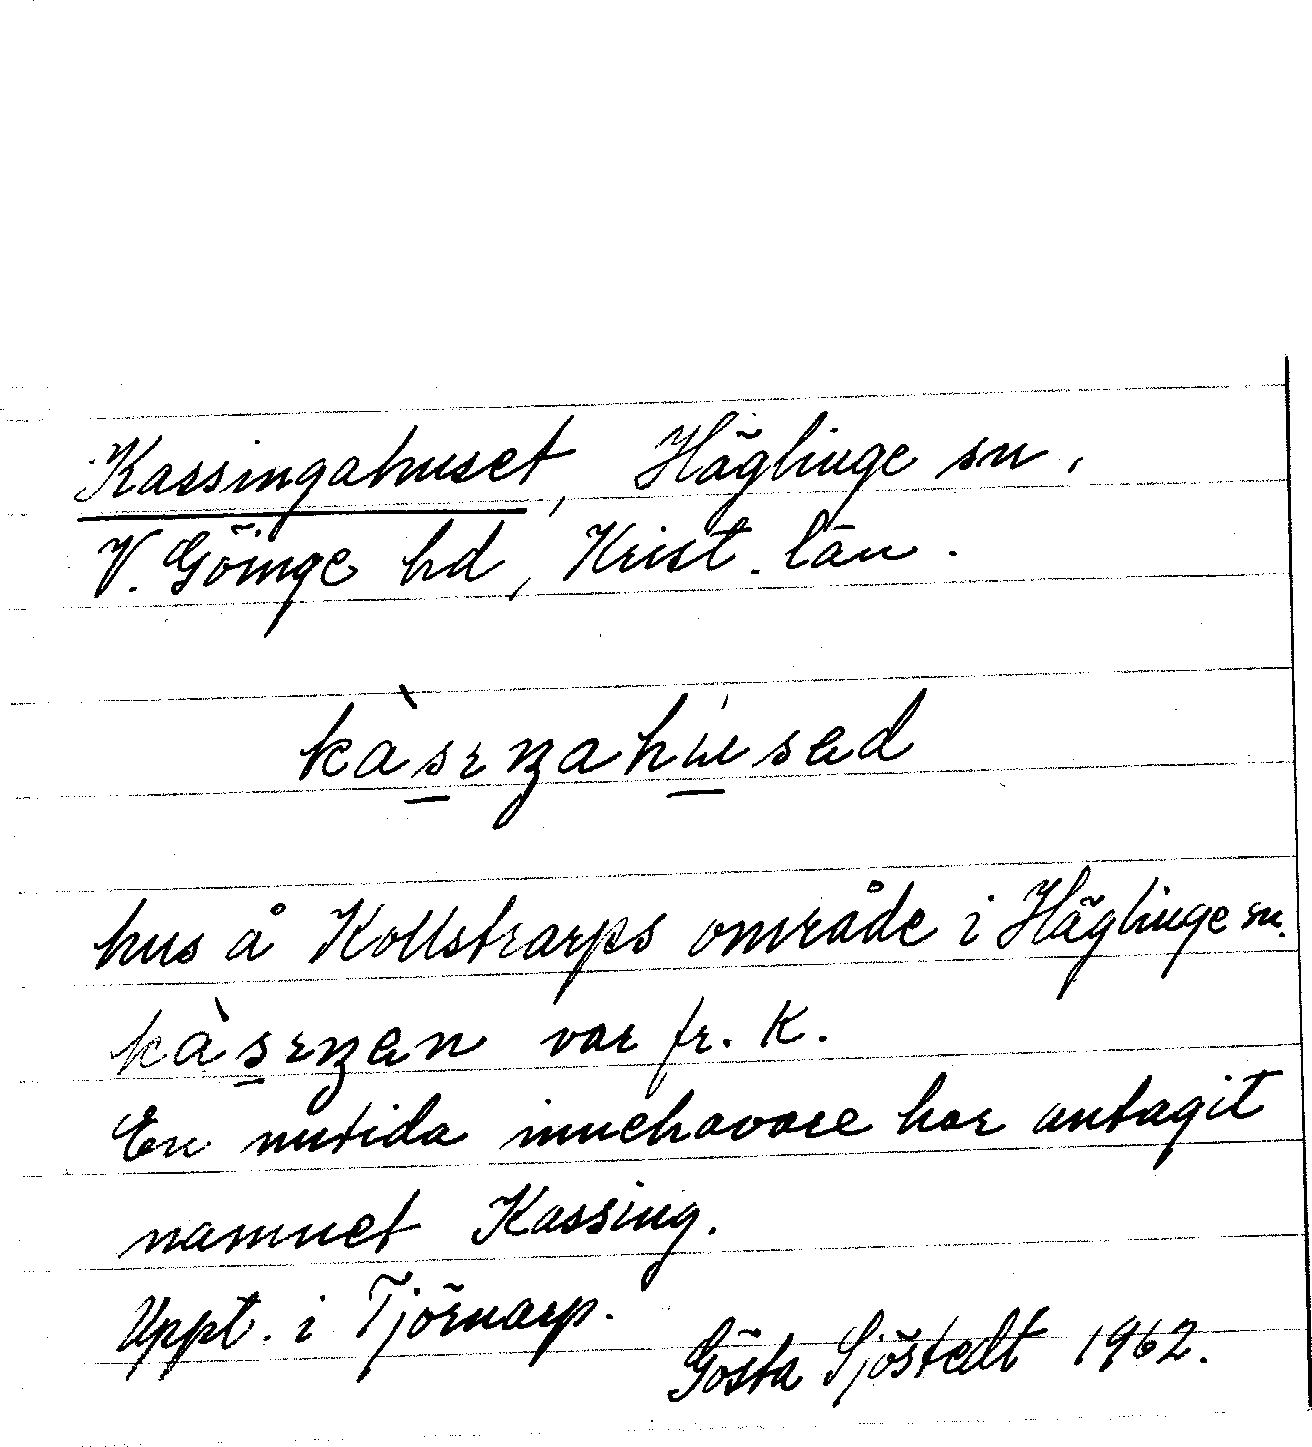 Kassingahuset, Häglinge sn.
V. Göinge hd, Krist. län.
kàsıŋahu̇sed
hus å Kollstrarps område i Häglinge sn.
kàsıŋen var fr. K.
En nutida innehavare har antagit
namnet Kassing.
Uppt. i Tjörnarp.
Gösta Sjöstedt 1962.